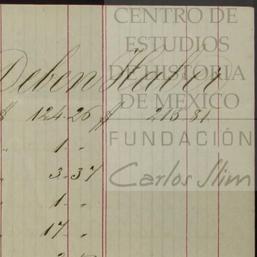 CENTRO DE
ESTUDIOS
DE HISTORIA
DE MEXICO
FUNDACIÓN
Carlos Slim
Deben Haber
$ 124.26 $ 216.31
" 1 "
" 3.37
" 1 "
" 17 "